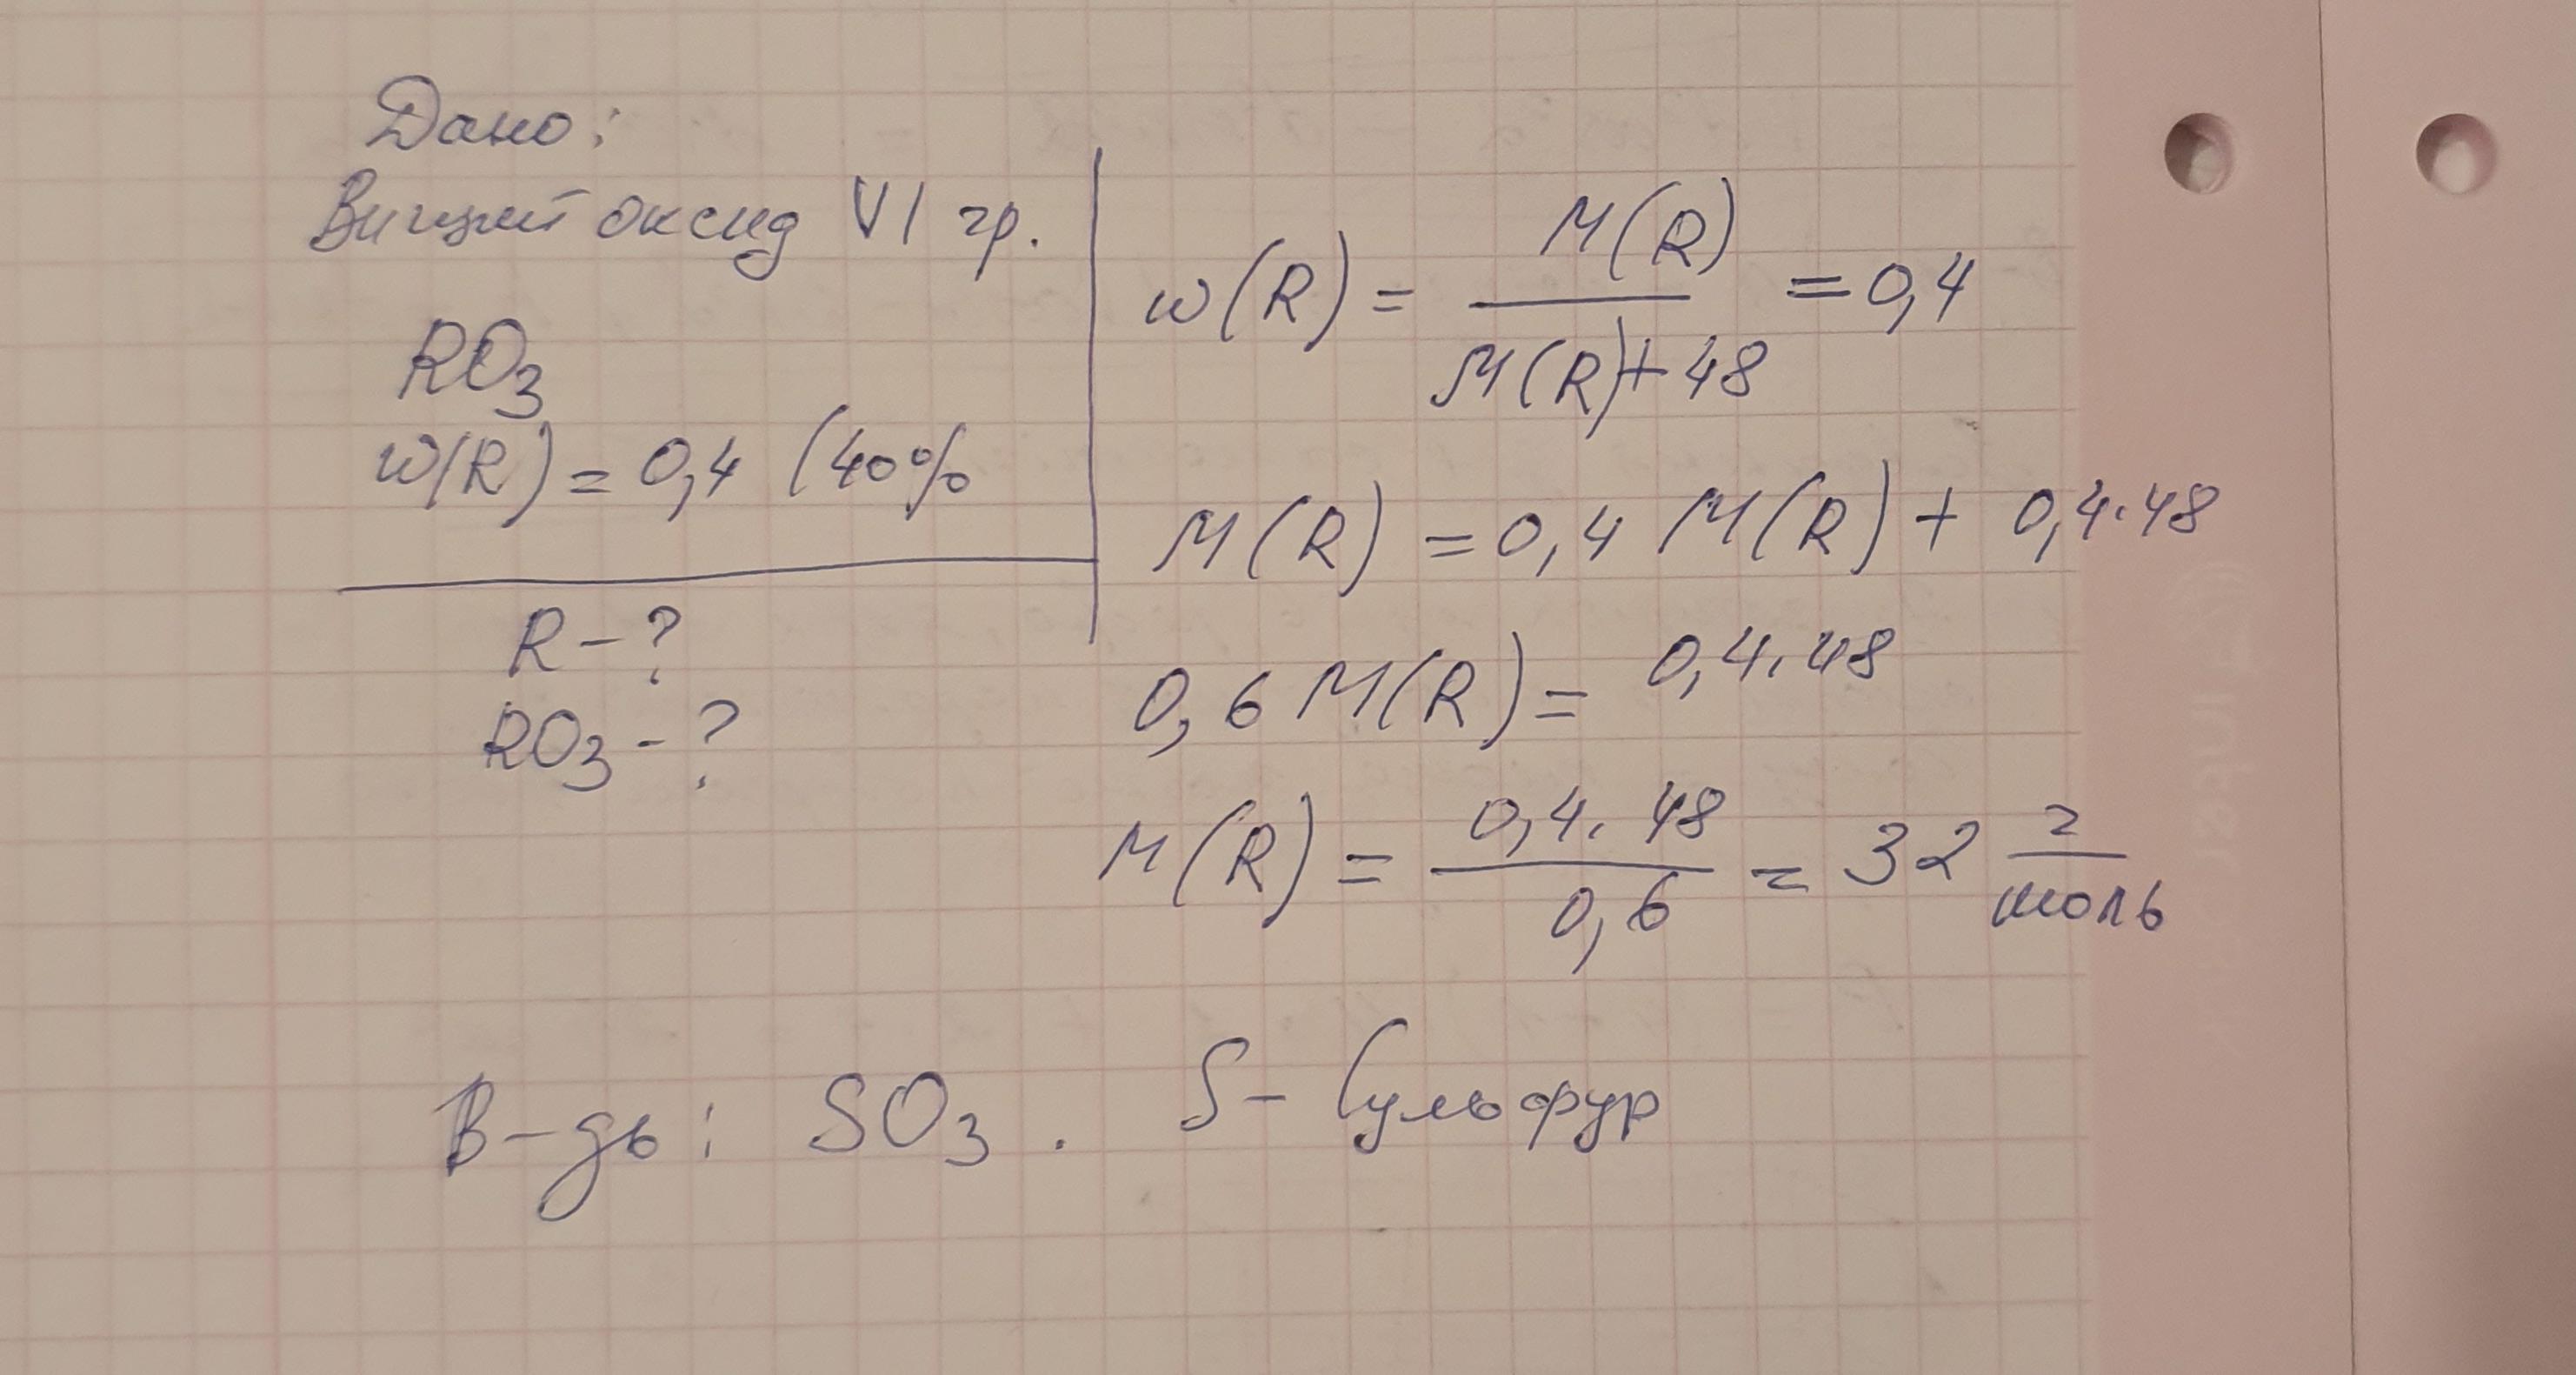 Дано:
Вищий оксид VI гр.
RO3
w(R) = 0,4 (40%
R - ?
RO3 - ?
w(R) = M(R) / M(R) + 48 = 0,4
M(R) = 0,4 M(R) + 0,4·48
0,6 M(R) = 0,4·48
M(R) = 0,4·48 / 0,6 = 32 г/моль
В-дь: SO3. S - Сульфур